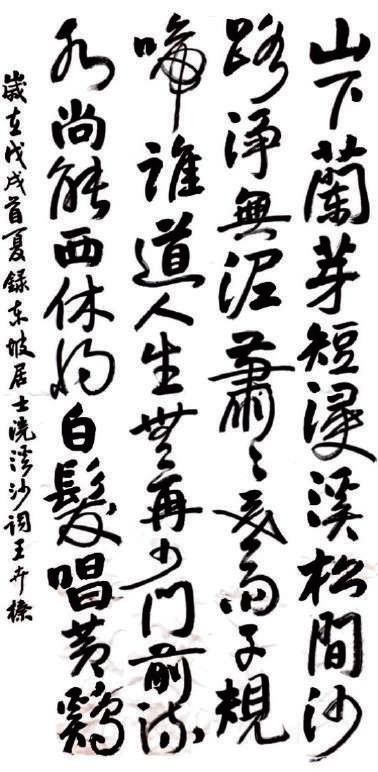 山下蘭芽短浸溪松間沙
路淨無泥蕭〻暮雨子規
啼誰道人生無再少門前流
水尚能西休將白髮唱黃鷄
歲在戊戌首夏録东坡居士浣溪沙词王卉